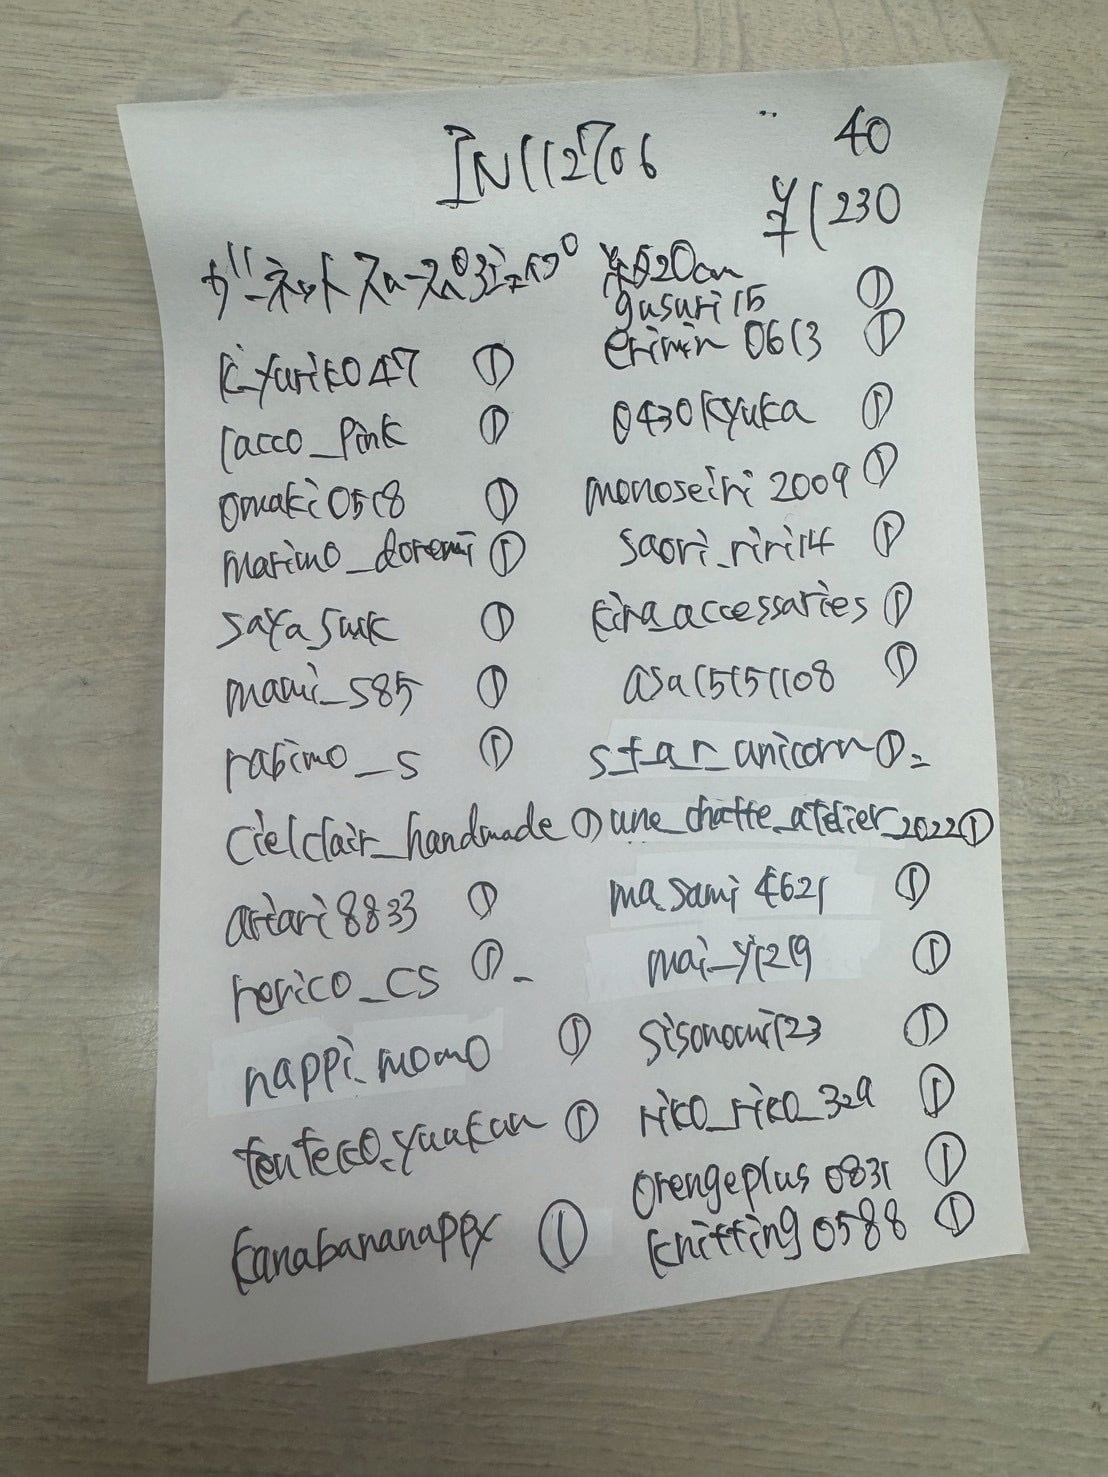 IN112706
40
¥1230
kiyuriko047 ①
racco_pink ①
omaki0518 ①
marimo_doremi ①
saya_suuk ①
mami_585 ①
rabimo_s ①
cielclair_handmade ①
ariari8833 ①
rerico_cs ①
nappi_momo ①
tenteko_yuukun ①
kanabananappy ①
gusuri15 ①
erimin0613 ①
0430kyuka ①
monoseiri2009 ①
saori_riri14 ①
kira_accessaries ①
asa15151108 ①
s_t_a_r_unicorn ①
une_chatte_atelier_2022 ①
masami4621 ①
mai_y1219 ①
sisonomi123 ①
rico_rico_329 ①
orengeplus0831 ①
knitting0588 ①